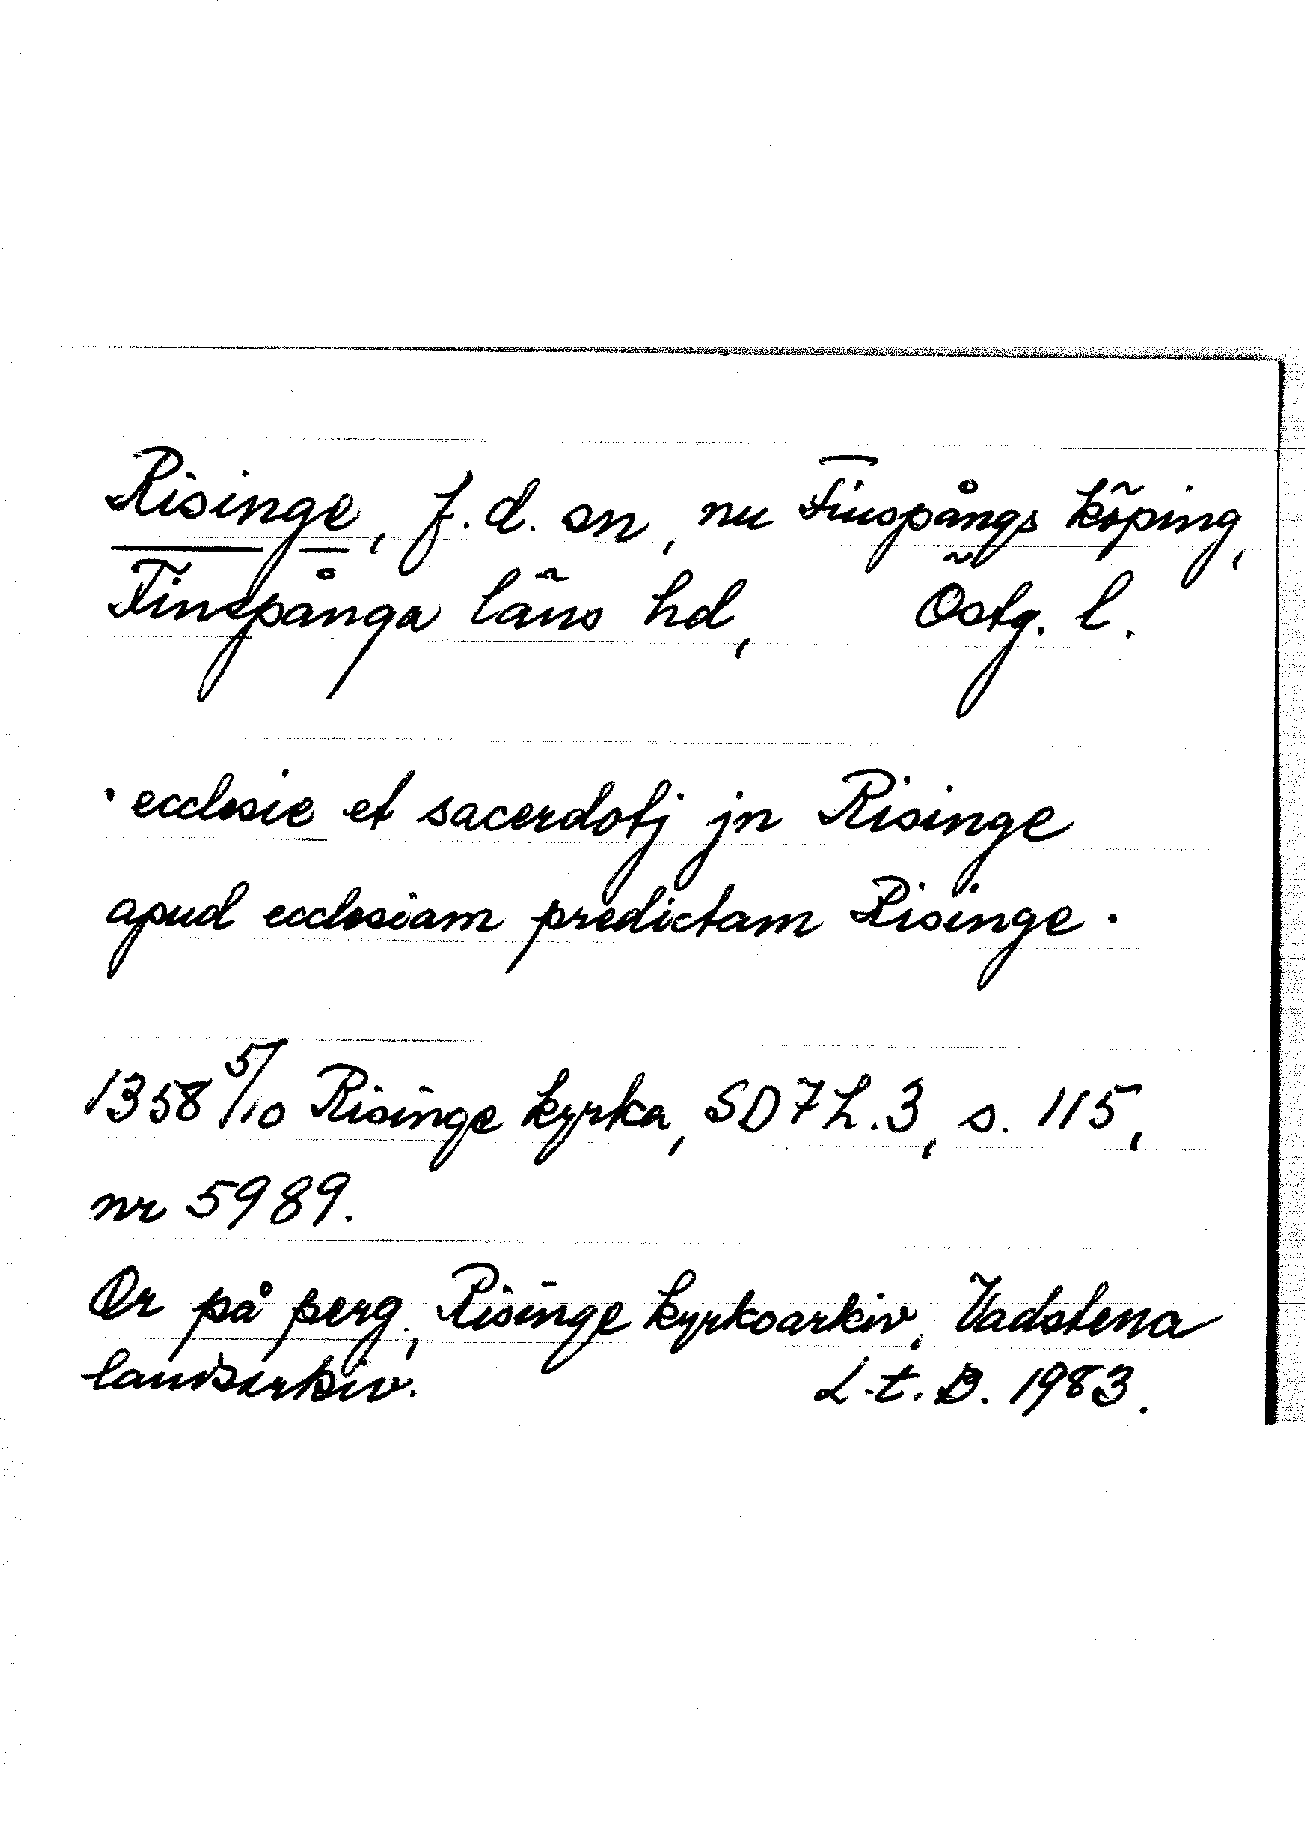 Risinge, f.d. sn, nu Finspångs köping,
Finspånga läns hd, Östg. l.
· ecclesie et sacerdotj jn Risinge
apud ecclesiam predictam Risinge ·
1358 5/10 Risinge kyrka, SD 7 h. 3, s. 115,
nr 5989.
Or på perg., Risinge kyrkoarkiv, Vadstena
landsarkiv. L.t.B. 1983.